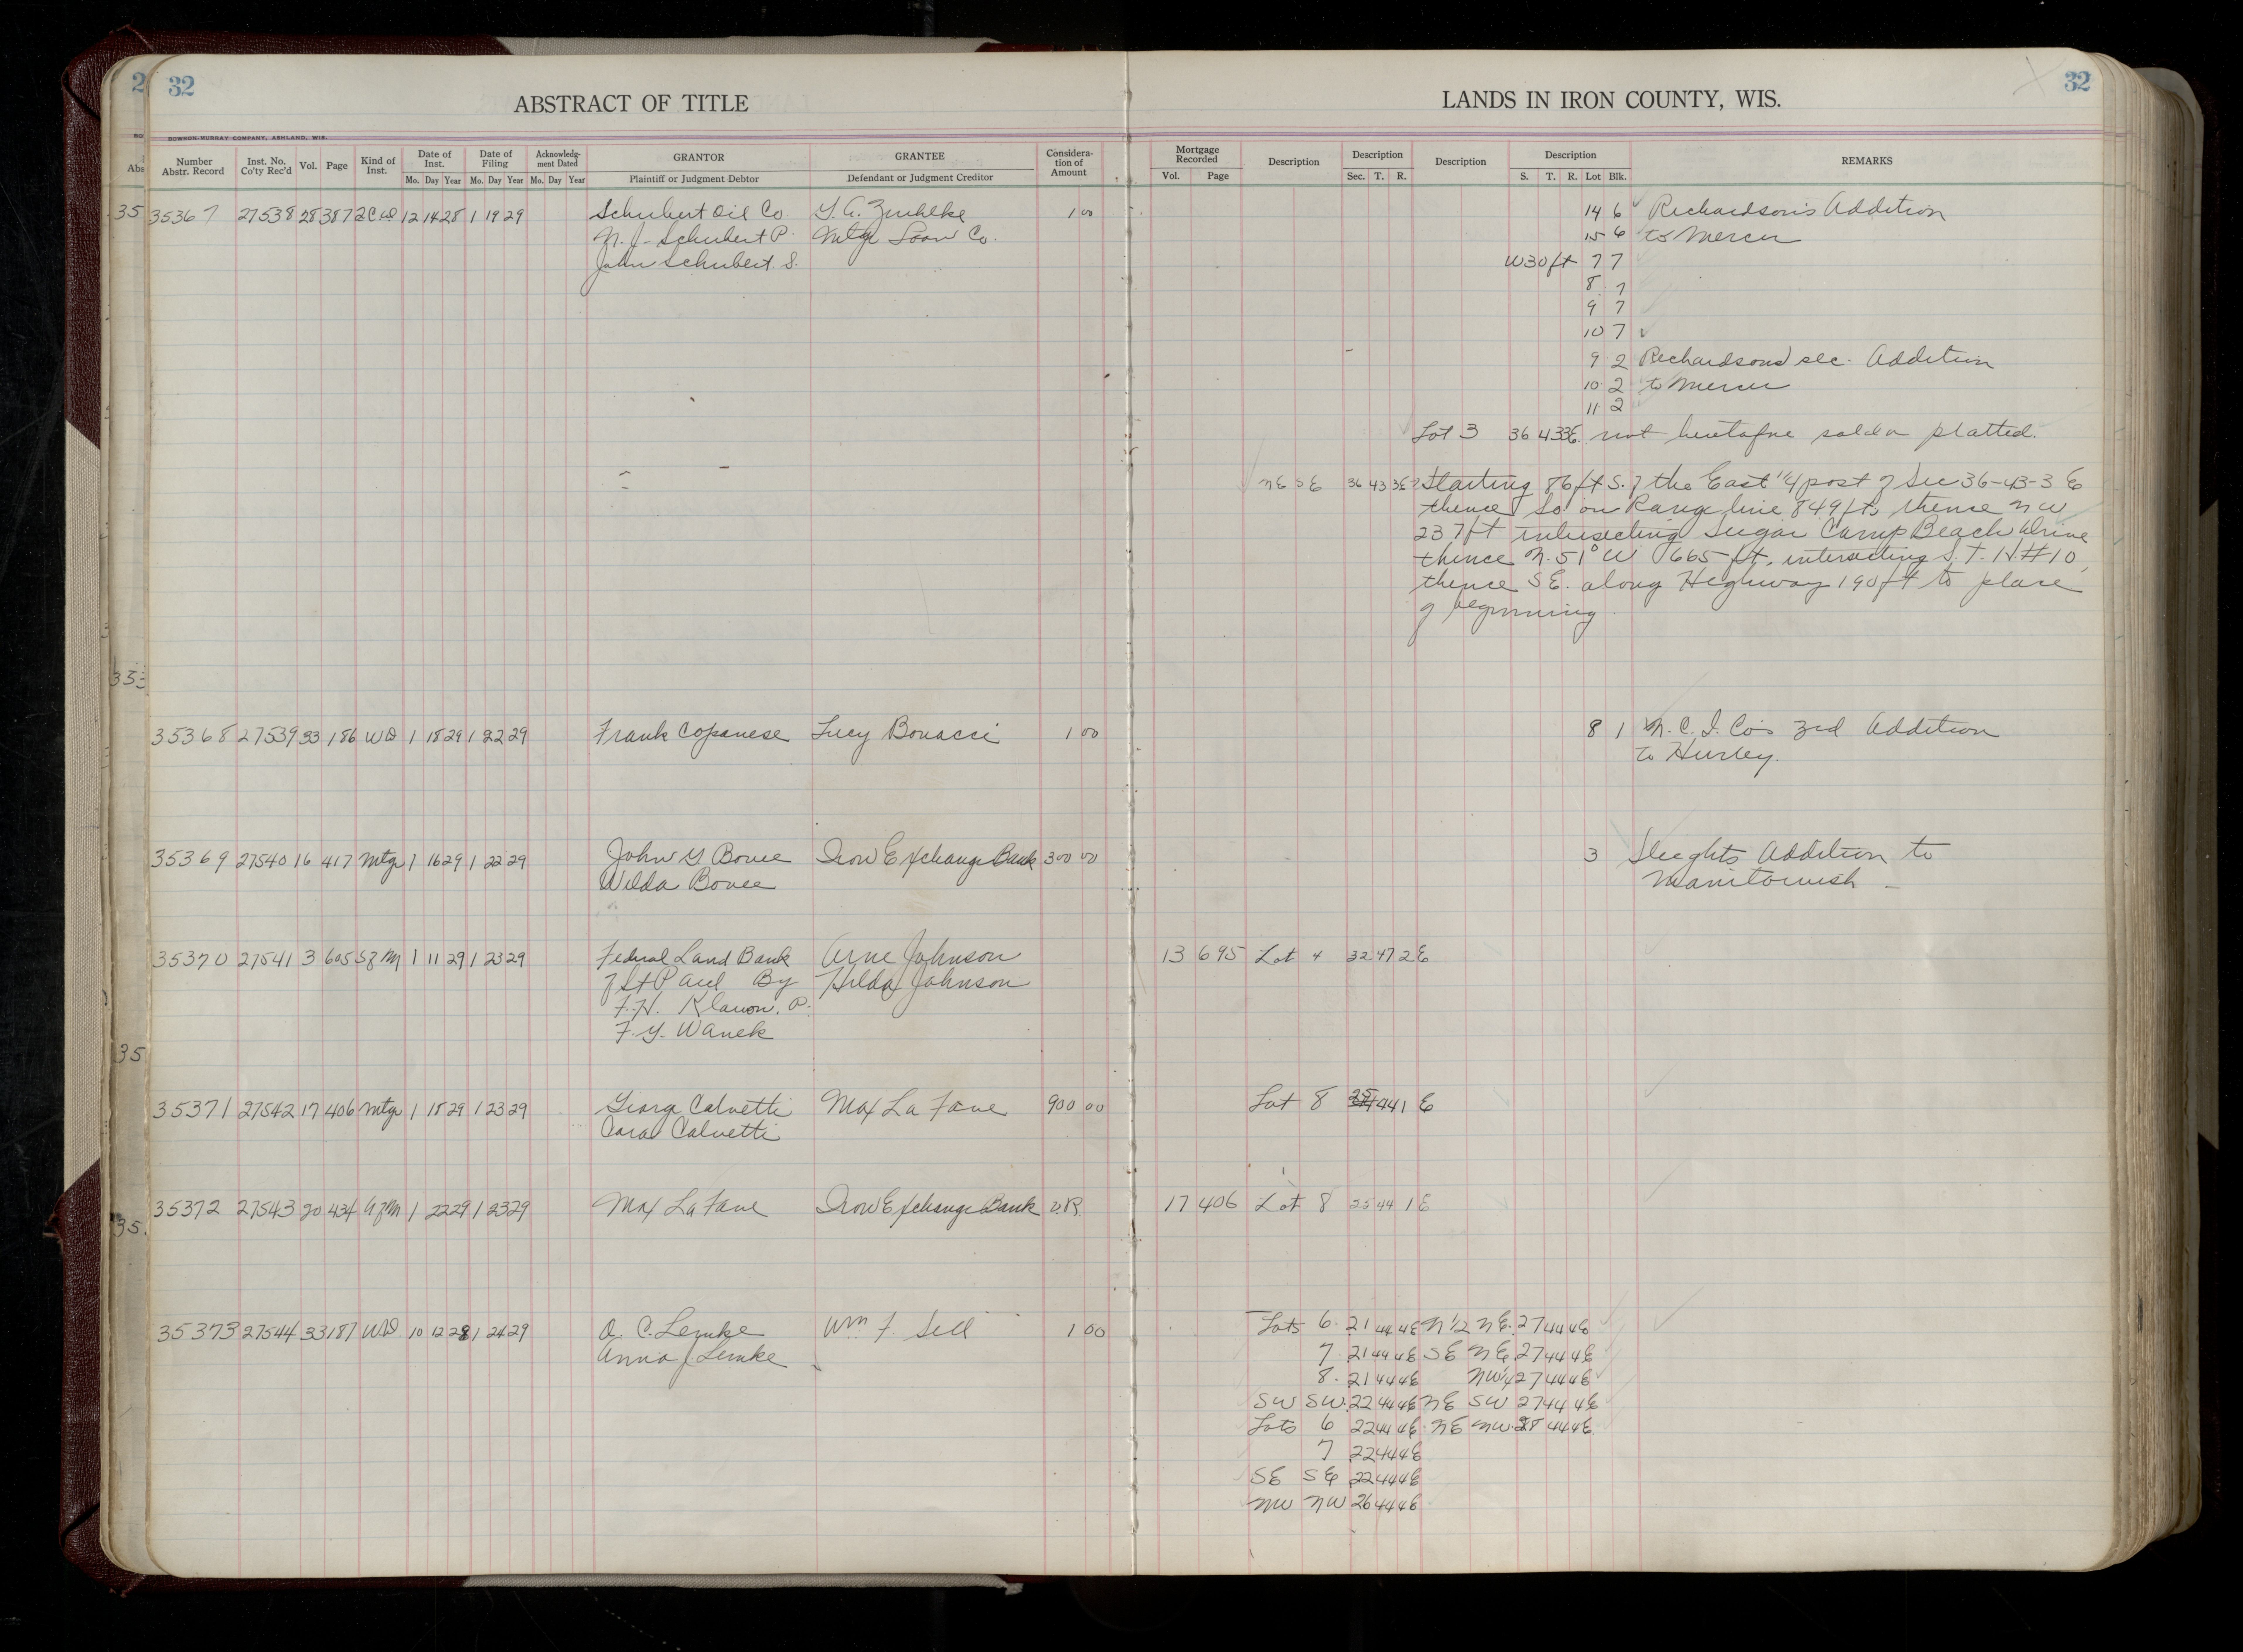 2 32
ABSTRACT OF TITLE
LANDS IN IRON COUNTY, WIS.
32
BOWRON-MURRAY COMPANY, ASHLAND, WIS.
Number Abstr. Record Inst. No. Co'ty Rec'd Vol. Page Kind of Inst. Date of Inst. Date of Filing Acknowledg-ment Dated GRANTOR GRANTEE Considera-tion of Amount Mortgage Recorded Description Description Description Description REMARKS
Mo. Day Year Mo. Day Year Mo. Day Year Plaintiff or Judgment Debtor Defendant or Judgment Creditor Vol. Page Sec. T. R. S. T. R. Lot Blk.
35367 27538 28 387 12 14 28 1 19 29 Schubert Oil Co Zuehlke 1 00 14 6 Richardson's Addition
N. J. Schubert P. Mtge Loan Co. 15 6 to Mercer
John Schubert S. W 30 ft 7 7
8 7
9 7
10 7
9 2 Richardsons sec. Addition
10 2 to Mercer
11 2
Lot 3 36 43 3E not heretofore sold or platted.
NE SE 36 43 3E Starting 86 ft S. of the East 1/4 post of Sec 36-43-3 E
thence So on Range line 849 ft, thence NW
237 ft intersecting Sugar Camp Beach Drive
thence N. 51° W 665 ft, intersecting S. T. H. #10,
thence SE. along Highway 190 ft to place
of beginning
35368 27539 33 186 WD 1 18 29 1 22 29 Frank Copanese Lucy Bonacci 1 00 8 1 N. C. I. Co's 3rd Addition
to Hurley.
35369 27540 16 417 Mtge 1 16 29 1 22 29 John Y Bouee Iron Exchange Bank 300 00 3 Sleights Addition to
Wilda Bouee Manitowish
35370 27541 3 605 Sf M 1 11 29 1 23 29 Federal Land Bank Arne Johnson 13 695 Lot 4 32 47 2E
of St Paul By Hilda Johnson
F. H. Klawon, P.
F. Y. Wanek
35371 27542 17 406 Mtge 1 18 29 1 23 29 George Calvetti Max La Fave 900 00 Lot 8 25 44 1 E
Cara Calvetti
35372 27543 20 434 Af M 1 22 29 1 23 29 Max La Fave Iron Exchange Bank V.R. 17 406 Lot 8 25 44 1E
35373 27544 33 187 WD 10 12 28 1 24 29 O. C. Lemke Wm F. Sell 1 00 Lots 6 21 44 4E N 1/2 NE 27 44 4E
Anna J Lemke 7 21 44 4E SE NE 27 44 4E
8 21 44 4E NW 1/4 27 44 4E
SW SW 22 44 4E NE SW 27 44 4E
Lots 6 22 44 4E NE NW 28 44 4E
7 22 44 4E
SE SE 22 44 4E
NW NW 26 44 4E